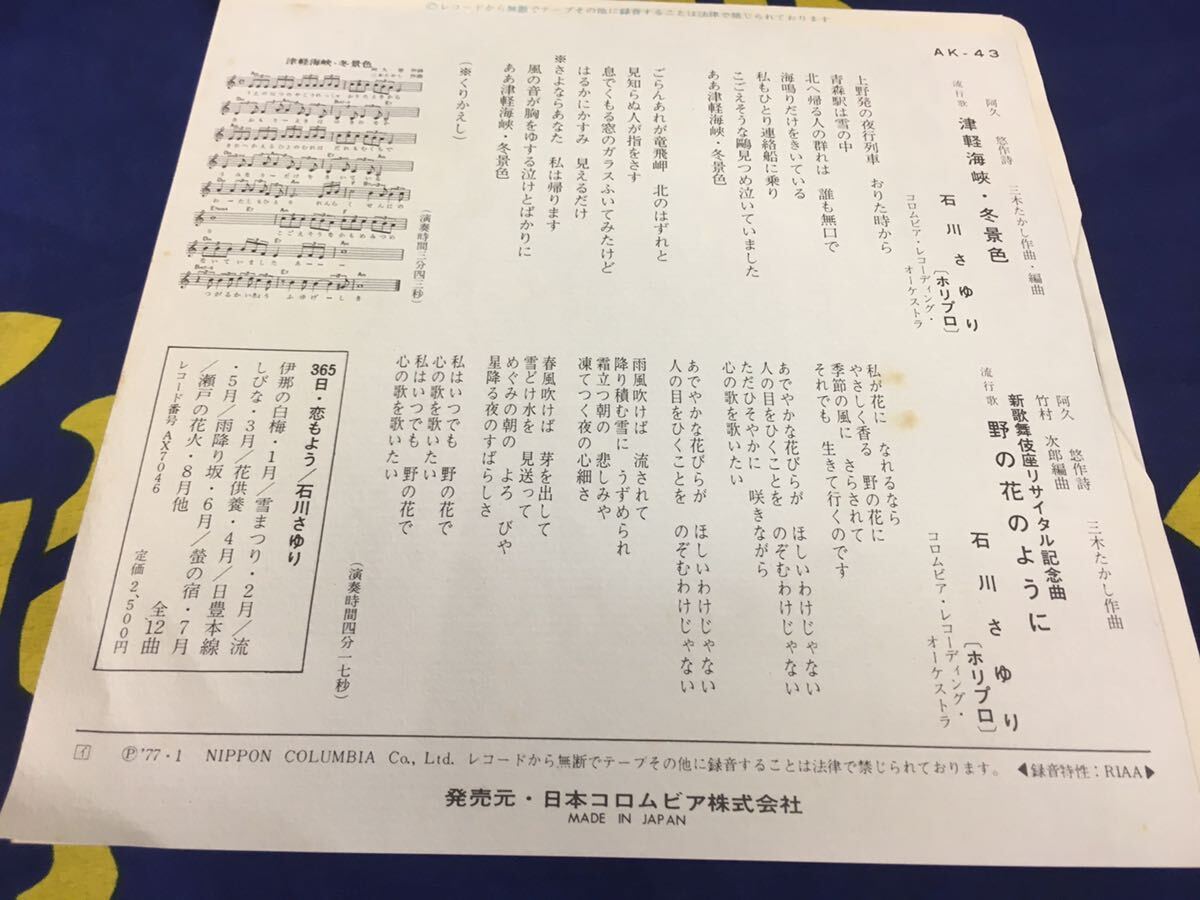 ©レコードから無断でテープその他に録音することは法律で禁じられております
AK-43
阿久 悠作詩
三木たかし作曲・編曲
流行歌 津軽海峡・冬景色
石川さゆり
〔ホリプロ〕
コロムビア・レコーディング・
オーケストラ
上野発の夜行列車 おりた時から
青森駅は雪の中
北へ帰る人の群れは 誰も無口で
海鳴りだけをきいている
私もひとり連絡船に乗り
こごえそうな鷗見つめ泣いていました
ああ津軽海峡・冬景色
ごらんあれが竜飛岬 北のはずれと
見知らぬ人が指をさす
息でくもる窓のガラスふいてみたけど
はるかにかすみ 見えるだけ
※さよならあなた 私は帰ります
風の音が胸をゆする泣けとばかりに
ああ津軽海峡・冬景色
（※くりかえし）
（演奏時間三分四三秒）
津軽海峡・冬景色
阿久 悠 作詩
三木たかし 作曲
阿久 悠作詩
竹村 次郎編曲
三木たかし作曲
新歌舞伎座リサイタル記念曲
流行歌 野の花のように
石川さゆり
〔ホリプロ〕
コロムビア・レコーディング・
オーケストラ
私が花に なれるなら
やさしく香る 野の花に
季節の風に さらされて
それでも 生きて行くのです
あでやかな花びらが ほしいわけじゃない
人の目をひくことを のぞむわけじゃない
ただひそやかに 咲きながら
心の歌を歌いたい
あでやかな花びらが ほしいわけじゃない
人の目をひくことを のぞむわけじゃない
雨風吹けば 流されて
降り積む雪に うずめられ
霜立つ朝の 悲しみや
凍てつく夜の心細さ
春風吹けば 芽を出して
雪どけ水を 見送って
めぐみの朝の よろこびや
星降る夜のすばらしさ
私はいつでも 野の花で
心の歌を歌いたい
私はいつでも 野の花で
心の歌を歌いたい
（演奏時間四分一七秒）
365日・恋もよう／石川さゆり
伊那の白梅・1月／雪まつり・2月／流
しびな・3月／花供養・4月／日豊本線
・5月／雨降り坂・6月／螢の宿・7月
／瀬戸の花火・8月他 全12曲
レコード番号 AX7046 定価 2,500円
イ Ⓟ'77・1 NIPPON COLUMBIA Co., Ltd. レコードから無断でテープその他に録音することは法律で禁じられております。 ◀録音特性：RIAA▶
発売元・日本コロムビア株式会社
MADE IN JAPAN